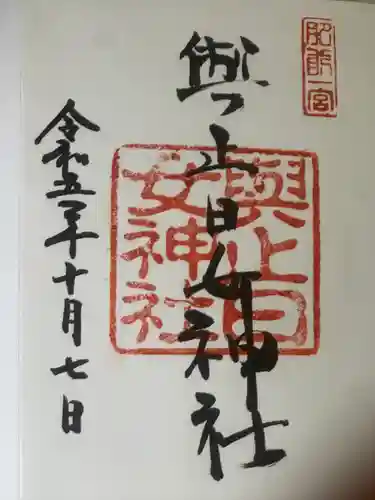 肥前一宮
與止日女神社
與止日女神社
令和五年十月七日